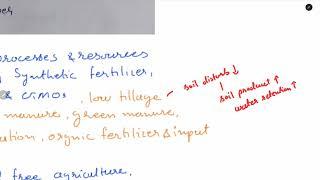 processes & resources
Synthetic fertilizer,
& GMOs, low tillage -
manure, green manure,
ation, orgnic fertilizer & input
free agriculture,
soil disturb ↓
soil product ↑
water retention ↑